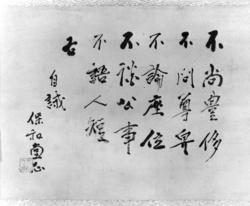 不尚豊侈
不問尊卑
不論座位
不談公事
不語人短
右
自
保和